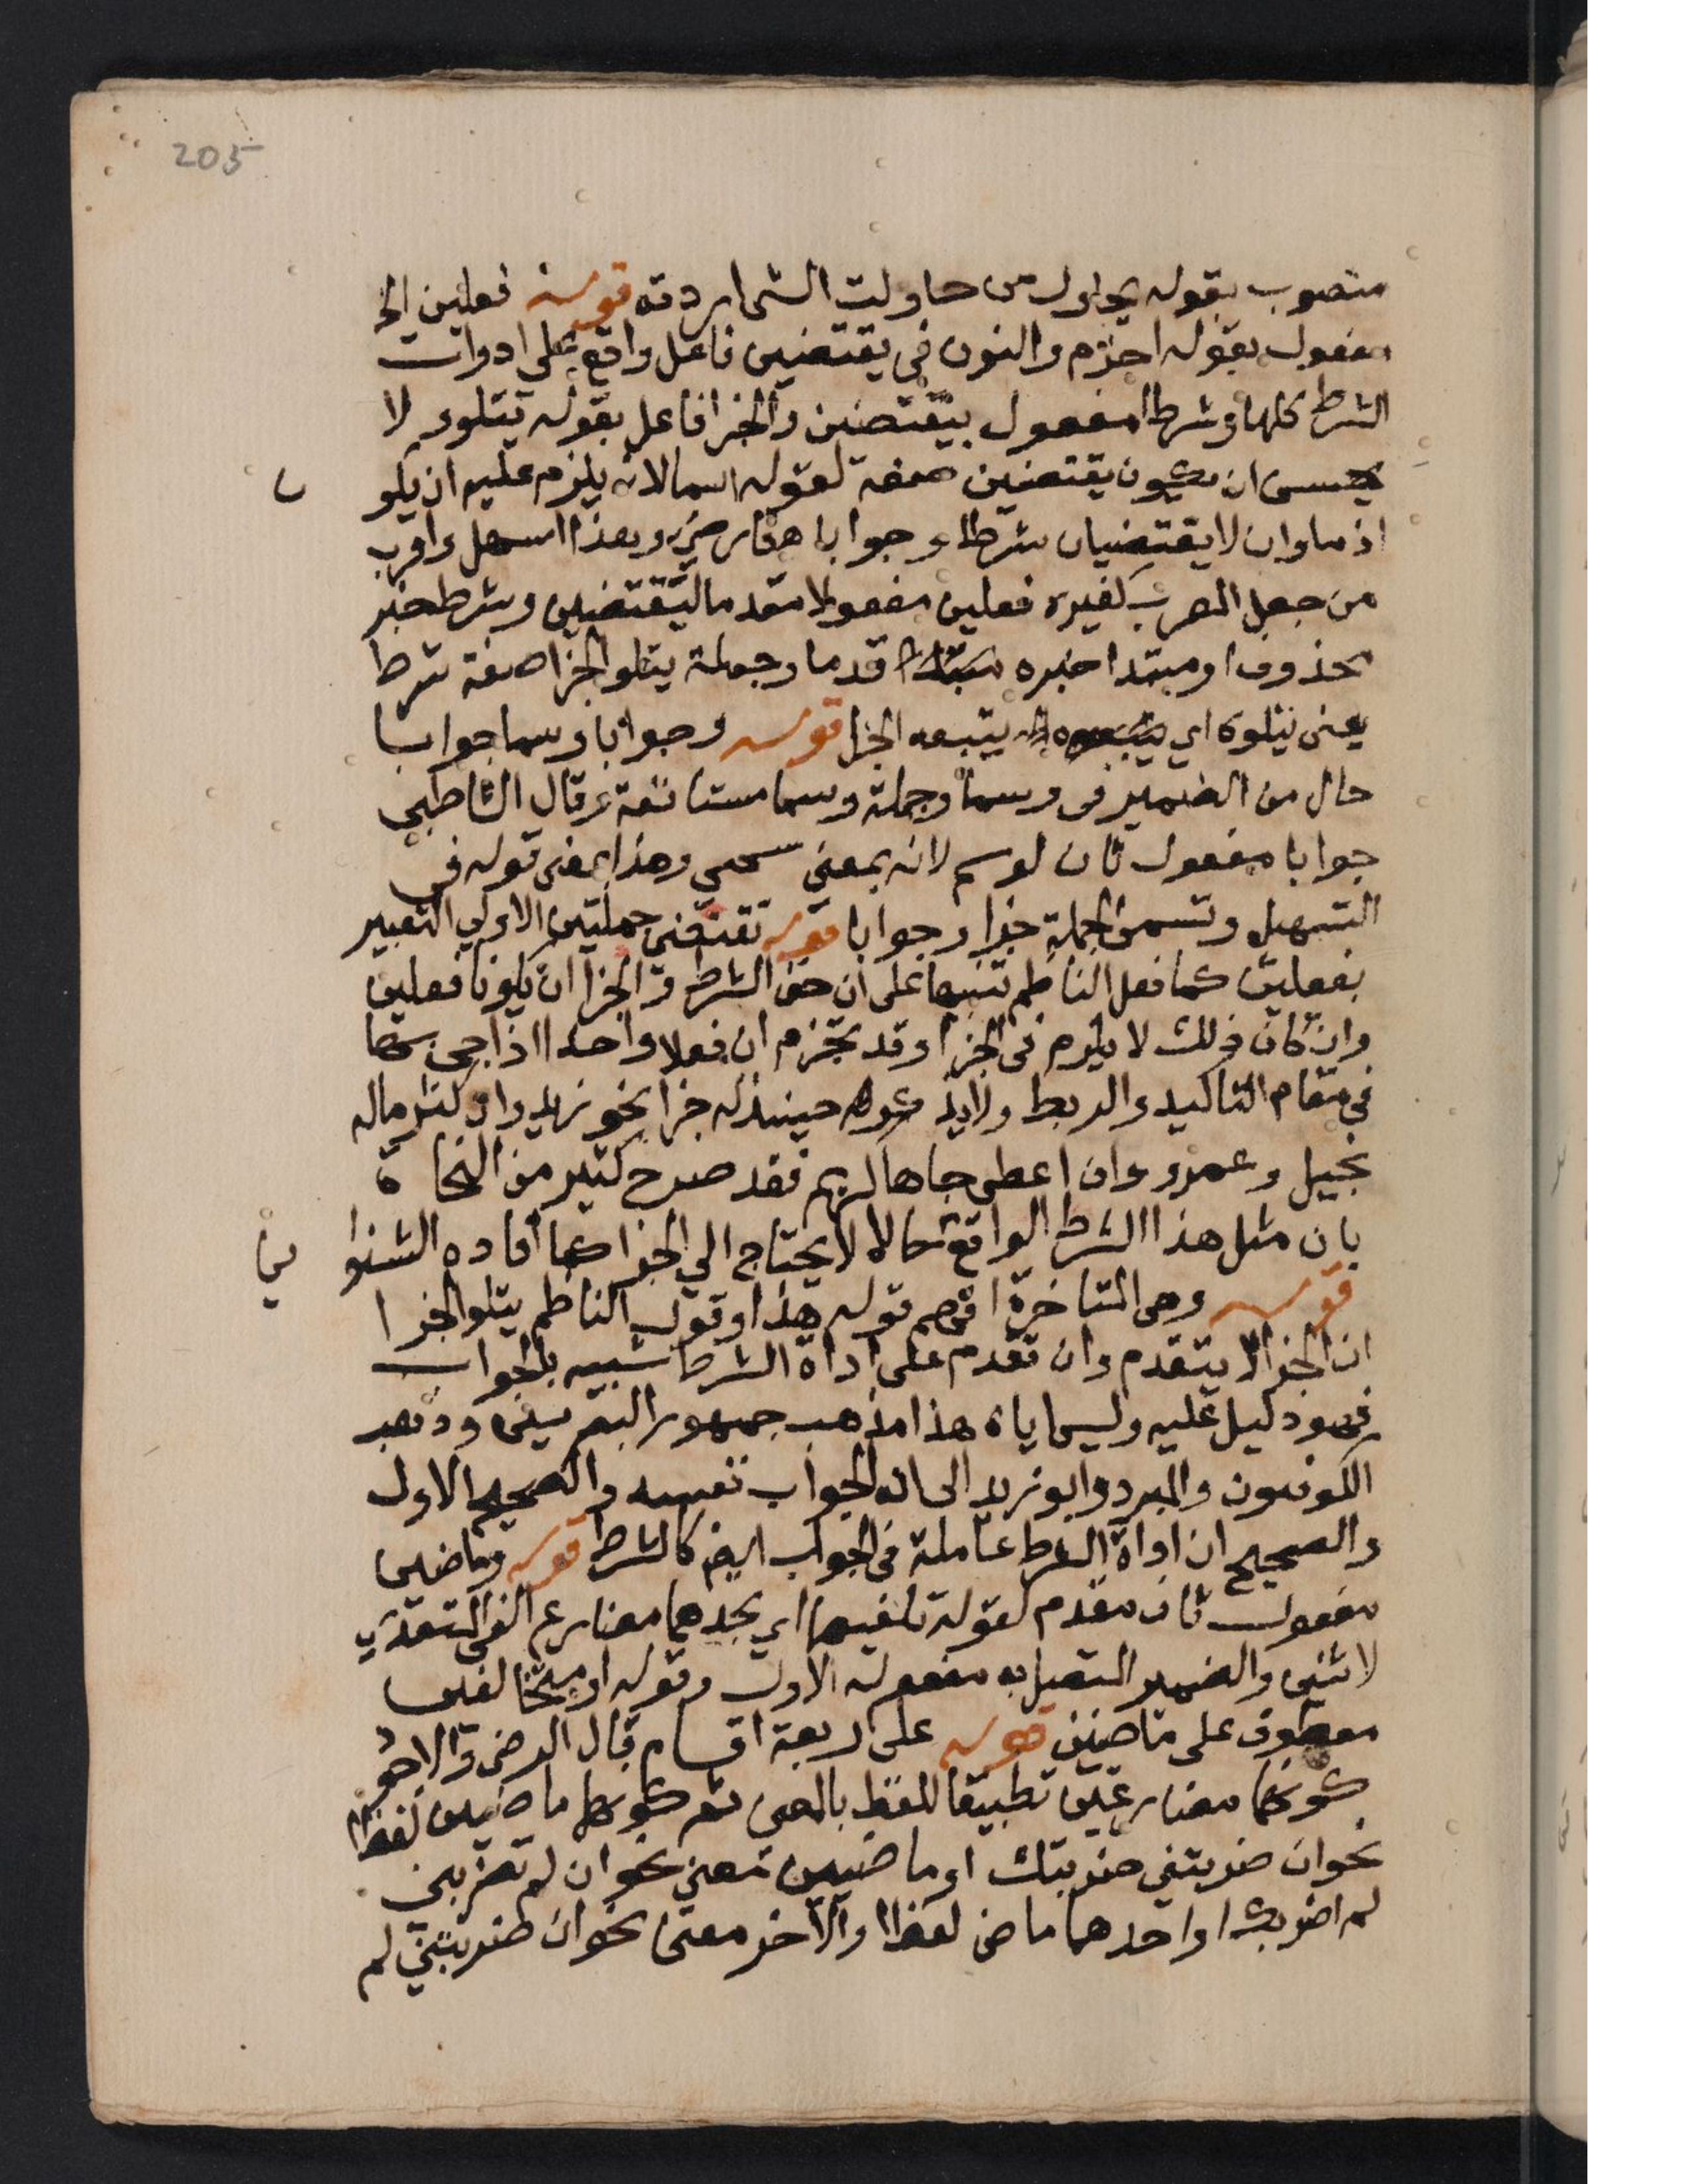 205
منصوب بقوله يحاول من حاولت الشى اردته قوله فعلين الخ
مفعول بقوله اجزم والنون في يقتضين فاعل واقع على ادوات
الشرط كلها وشرط مفعول بيقتضين والجزا فاعل بقوله يتلو ولا
يحسن ان يكون يقتضين صفة لقوله اسما لانه يلزم عليه ان يلو
اذما وان لا يقتضيان شرطا وجوابا وهذا اسهل واقرب
من جعل المعرب كغيره فعلين مفعولا مقدما ليقتضين وشرط خبر
محذوف او مبتدا خبره قدما وجملة يتلو الجزا صفة شرط
يعنى يتلوه اي يتبعه الجزا قوله وجوابا وسما جوابا
حال من الضمير فى وسما وجملة وسما مستانفة وقال الشاطبي
جوابا مفعول ثان لوسم لانه بمعنى سمي وهذا بمعنى قوله في
التسهيل وتسمى الجملة جزا وجوابا قوله تقتضى جملتين الاولي التعبير
بفعلين كما فعل الناظم تنبيها على ان حق الشرط والجزا ان يكونا فعلين
وان كان ذلك لا يلزم فى الجزا وقد تجزم ان فعلا واحدا اذا جي بها
في مقام التاكيد والربط ولا حينئذ له جزا نحو زيد وان كثر ماله
بخيل وعمرو وان اعطى جاها لييم فقد صرح كثير من النحاة
بان مثل هذا الشرط الواقع حالا لا يحتاج الي الجزا كما افاده الشنوا
ني
قوله وهى المتاخرة افهم قوله هذا وقول الناظم يتلو الجزا
ان الجزا لا يتقدم وان تقدم على اداة الشرط شبيه بالجواب
فهو دليل عليه وليس اياه هذا مذهب جمهور البصريين وذهب
الكوفيون والمبرد وابو زيد الى انه الجواب نفسه والصحيح الاول
والصحيح ان اداة الشرط عاملة فى الجواب ايض كالشرط قوله وماضيين
مفعول ثان مقدم لقوله تلفيهما اي تجدهما مضارع الفى المتعدي
لاثنين والضمير المتصل به مفعوله الاول وقوله او متخالفين
معطوف على ماضيين قوله على اربعة اقسام قال الرضى والاجود
كونهما مضارعين تطبيقا للفظ بالمعنى ثم كونهما ماضيين لفظا
نحوان ضربتني ضربتك او ماضيين معنى نحو ان لم تضربني
لم اضربك او احدهما ماض لفظا والاخر معنى نحوان ضربتني لم